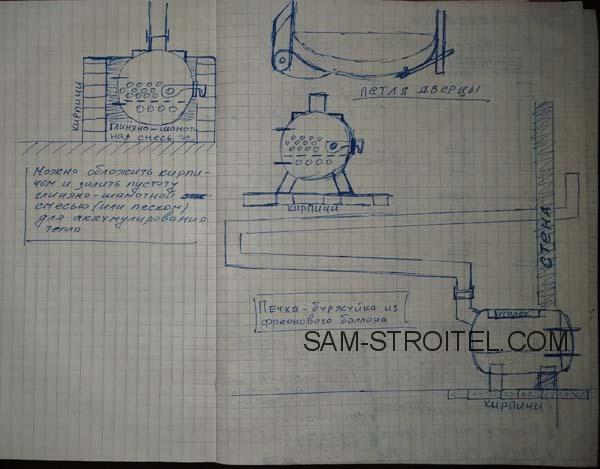 КИРПИЧИ
ГЛИНЯНО-ШАМОТ-
НАЯ СМЕСЬ
Можно обложить кирпи-
чом и залить пустоту
глиняно-шамотной
смесью (или песком)
для аккумулирования
тепла
ПЕТЛЯ ДВЕРЦЫ
КИРПИЧИ
СТЕНА
Печка-буржуйка из
фреонового баллона
УГОЛОК
SAM-STROITEL.COM
КИРПИЧИ